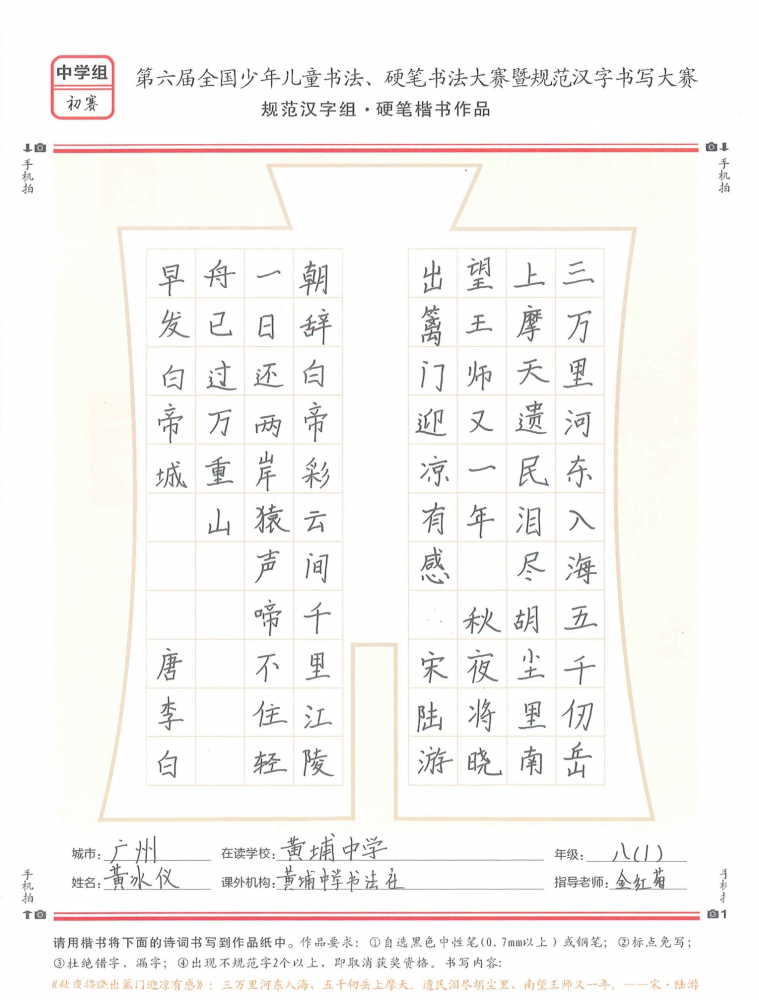 中学组
初赛
第六届全国少年儿童书法、硬笔书法大赛暨规范汉字书写大赛
规范汉字组·硬笔楷书作品
手机拍
手机拍
三万里河东入海五千仞岳
上摩天遗民泪尽胡尘里南
望王师又一年 秋夜将晓
出篱门迎凉有感 宋陆游
朝辞白帝彩云间千里江陵
一日还两岸猿声啼不住轻
舟已过万重山
早发白帝城 唐李白
城市：广州 在读学校：黄埔中学 年级：八(1)
姓名：黄冰仪 课外机构：黄埔中学书法社 指导老师：金红菊
手机拍
手机
1
请用楷书将下面的诗词书写到作品纸中。作品要求：①自选黑色中性笔(0.7mm以上)或钢笔；②标点免写；
③杜绝错字、漏字；④出现不规范字2个以上，即取消获奖资格。书写内容：
《秋夜将晓出篱门迎凉有感》：三万里河东入海，五千仞岳上摩天。遗民泪尽胡尘里，南望王师又一年。——宋·陆游